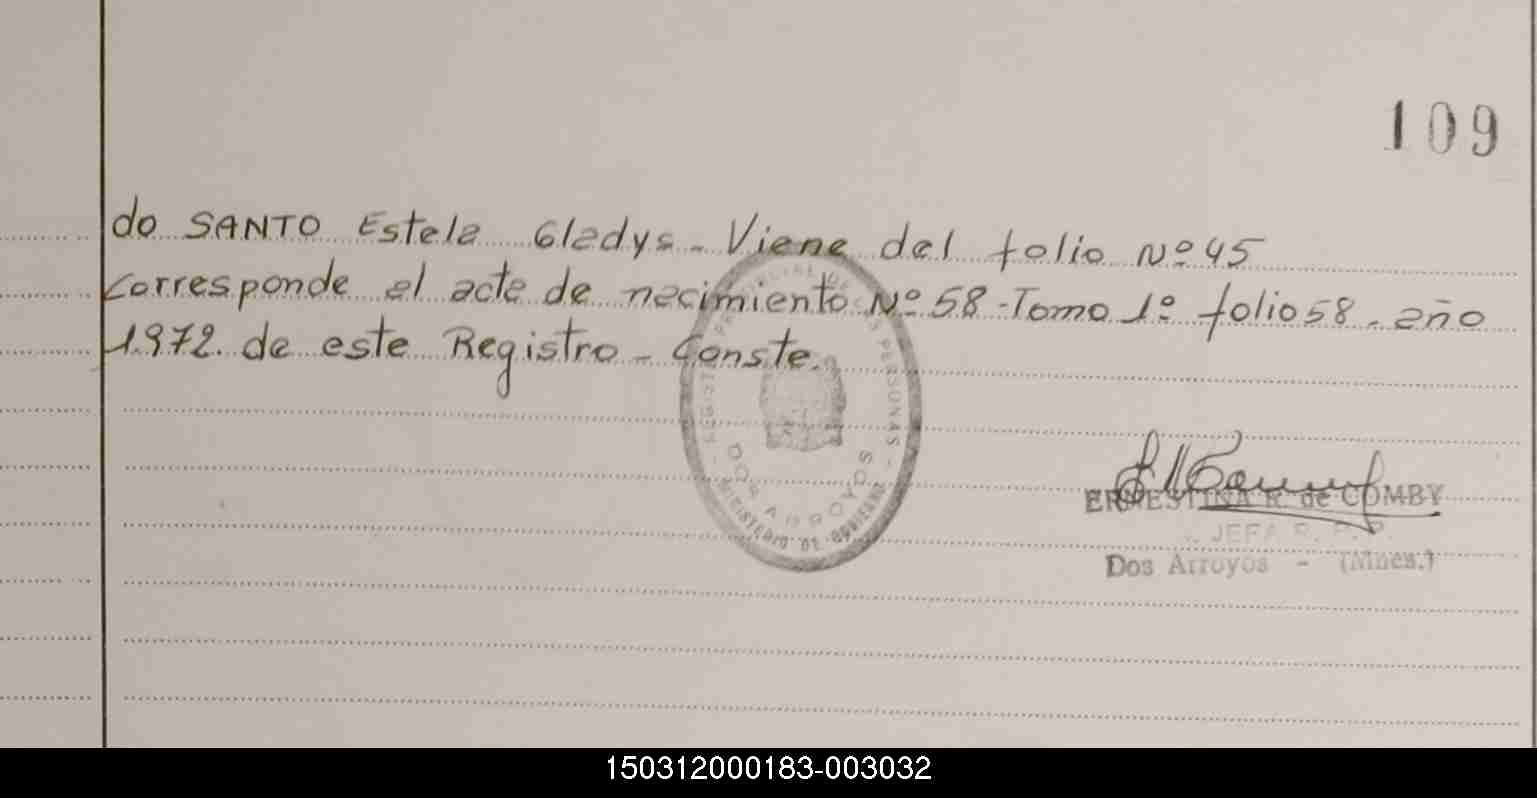 109
do SANTO Estela Gladys - Viene del folio Nº 45
Corresponde al acta de nacimiento Nº 58 - Tomo 1º folio 58 - año
1972. de este Registro - Conste.
REGISTRO PROVINCIAL DE LAS PERSONAS
DOS ARROYOS
MINISTERIO DE GOBIERNO
ERNESTINA R. de COMBY
JEFA R. P. P.
Dos Arroyos - (Mnes.)
150312000183-003032